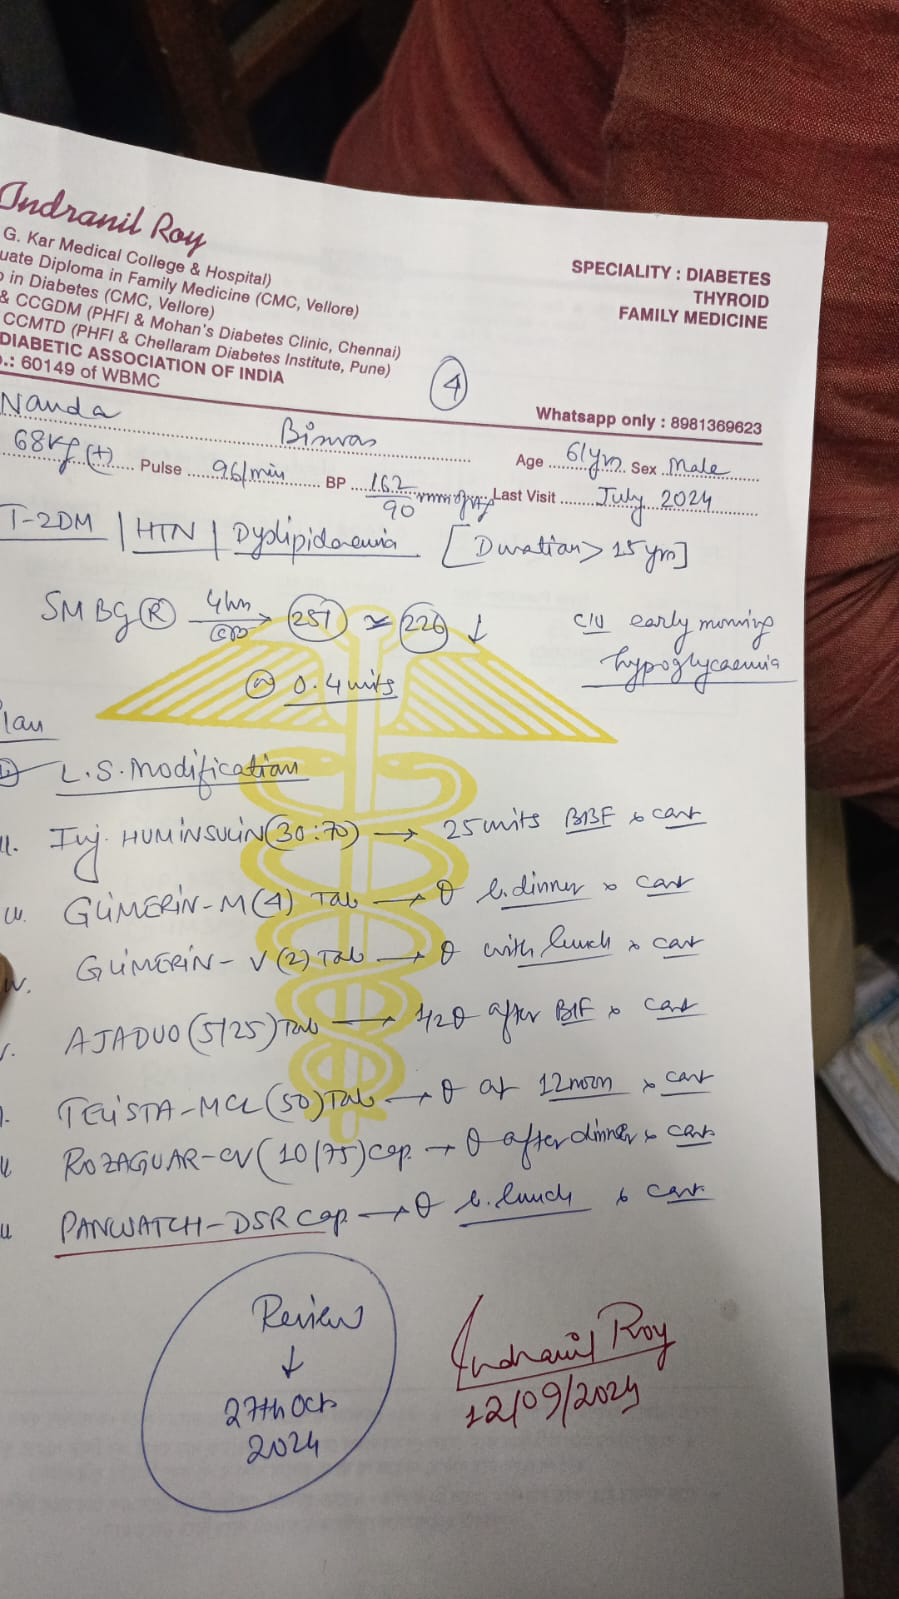 Indranil Roy
G. Kar Medical College & Hospital)
uate Diploma in Family Medicine (CMC, Vellore)
in Diabetes (CMC, Vellore)
& CCGDM (PHFI & Mohan's Diabetes Clinic, Chennai)
CCMTD (PHFI & Chellaram Diabetes Institute, Pune)
DIABETIC ASSOCIATION OF INDIA
.: 60149 of WBMC
SPECIALITY : DIABETES
THYROID
FAMILY MEDICINE
4
Whatsapp only : 8981369623
Nanda Biswas Age 61yrs. Sex Male
68kg (+) Pulse 96/min BP 162/90 mm of Hg Last Visit July 2024
T-2DM | HTN | Dyslipidaemia [Duration > 15 yrs]
SMBG (R) 4hrs 251 226 ↓
c/o early morning
hypoglycaemia
0.4 units
lan
L.S. Modification
Inj. HUMINSULIN (30:70) → 25 units BBF x cont
GLIMERIN-M(4) Tab → b. dinner x cont
GLIMERIN-V(2) Tab → with lunch x cont
AJADUO (5/25) Tab → 1/2 after B/F x cont
TELISTA-MCL (50) Tab → at 12 noon x cont
ROZAGUAR-CV (10/75) cap. → after dinner x cont
PANWATCH-DSR cap → b. lunch x cont
Review
↓
27th Oct
2024
Indranil Roy
12/09/2024